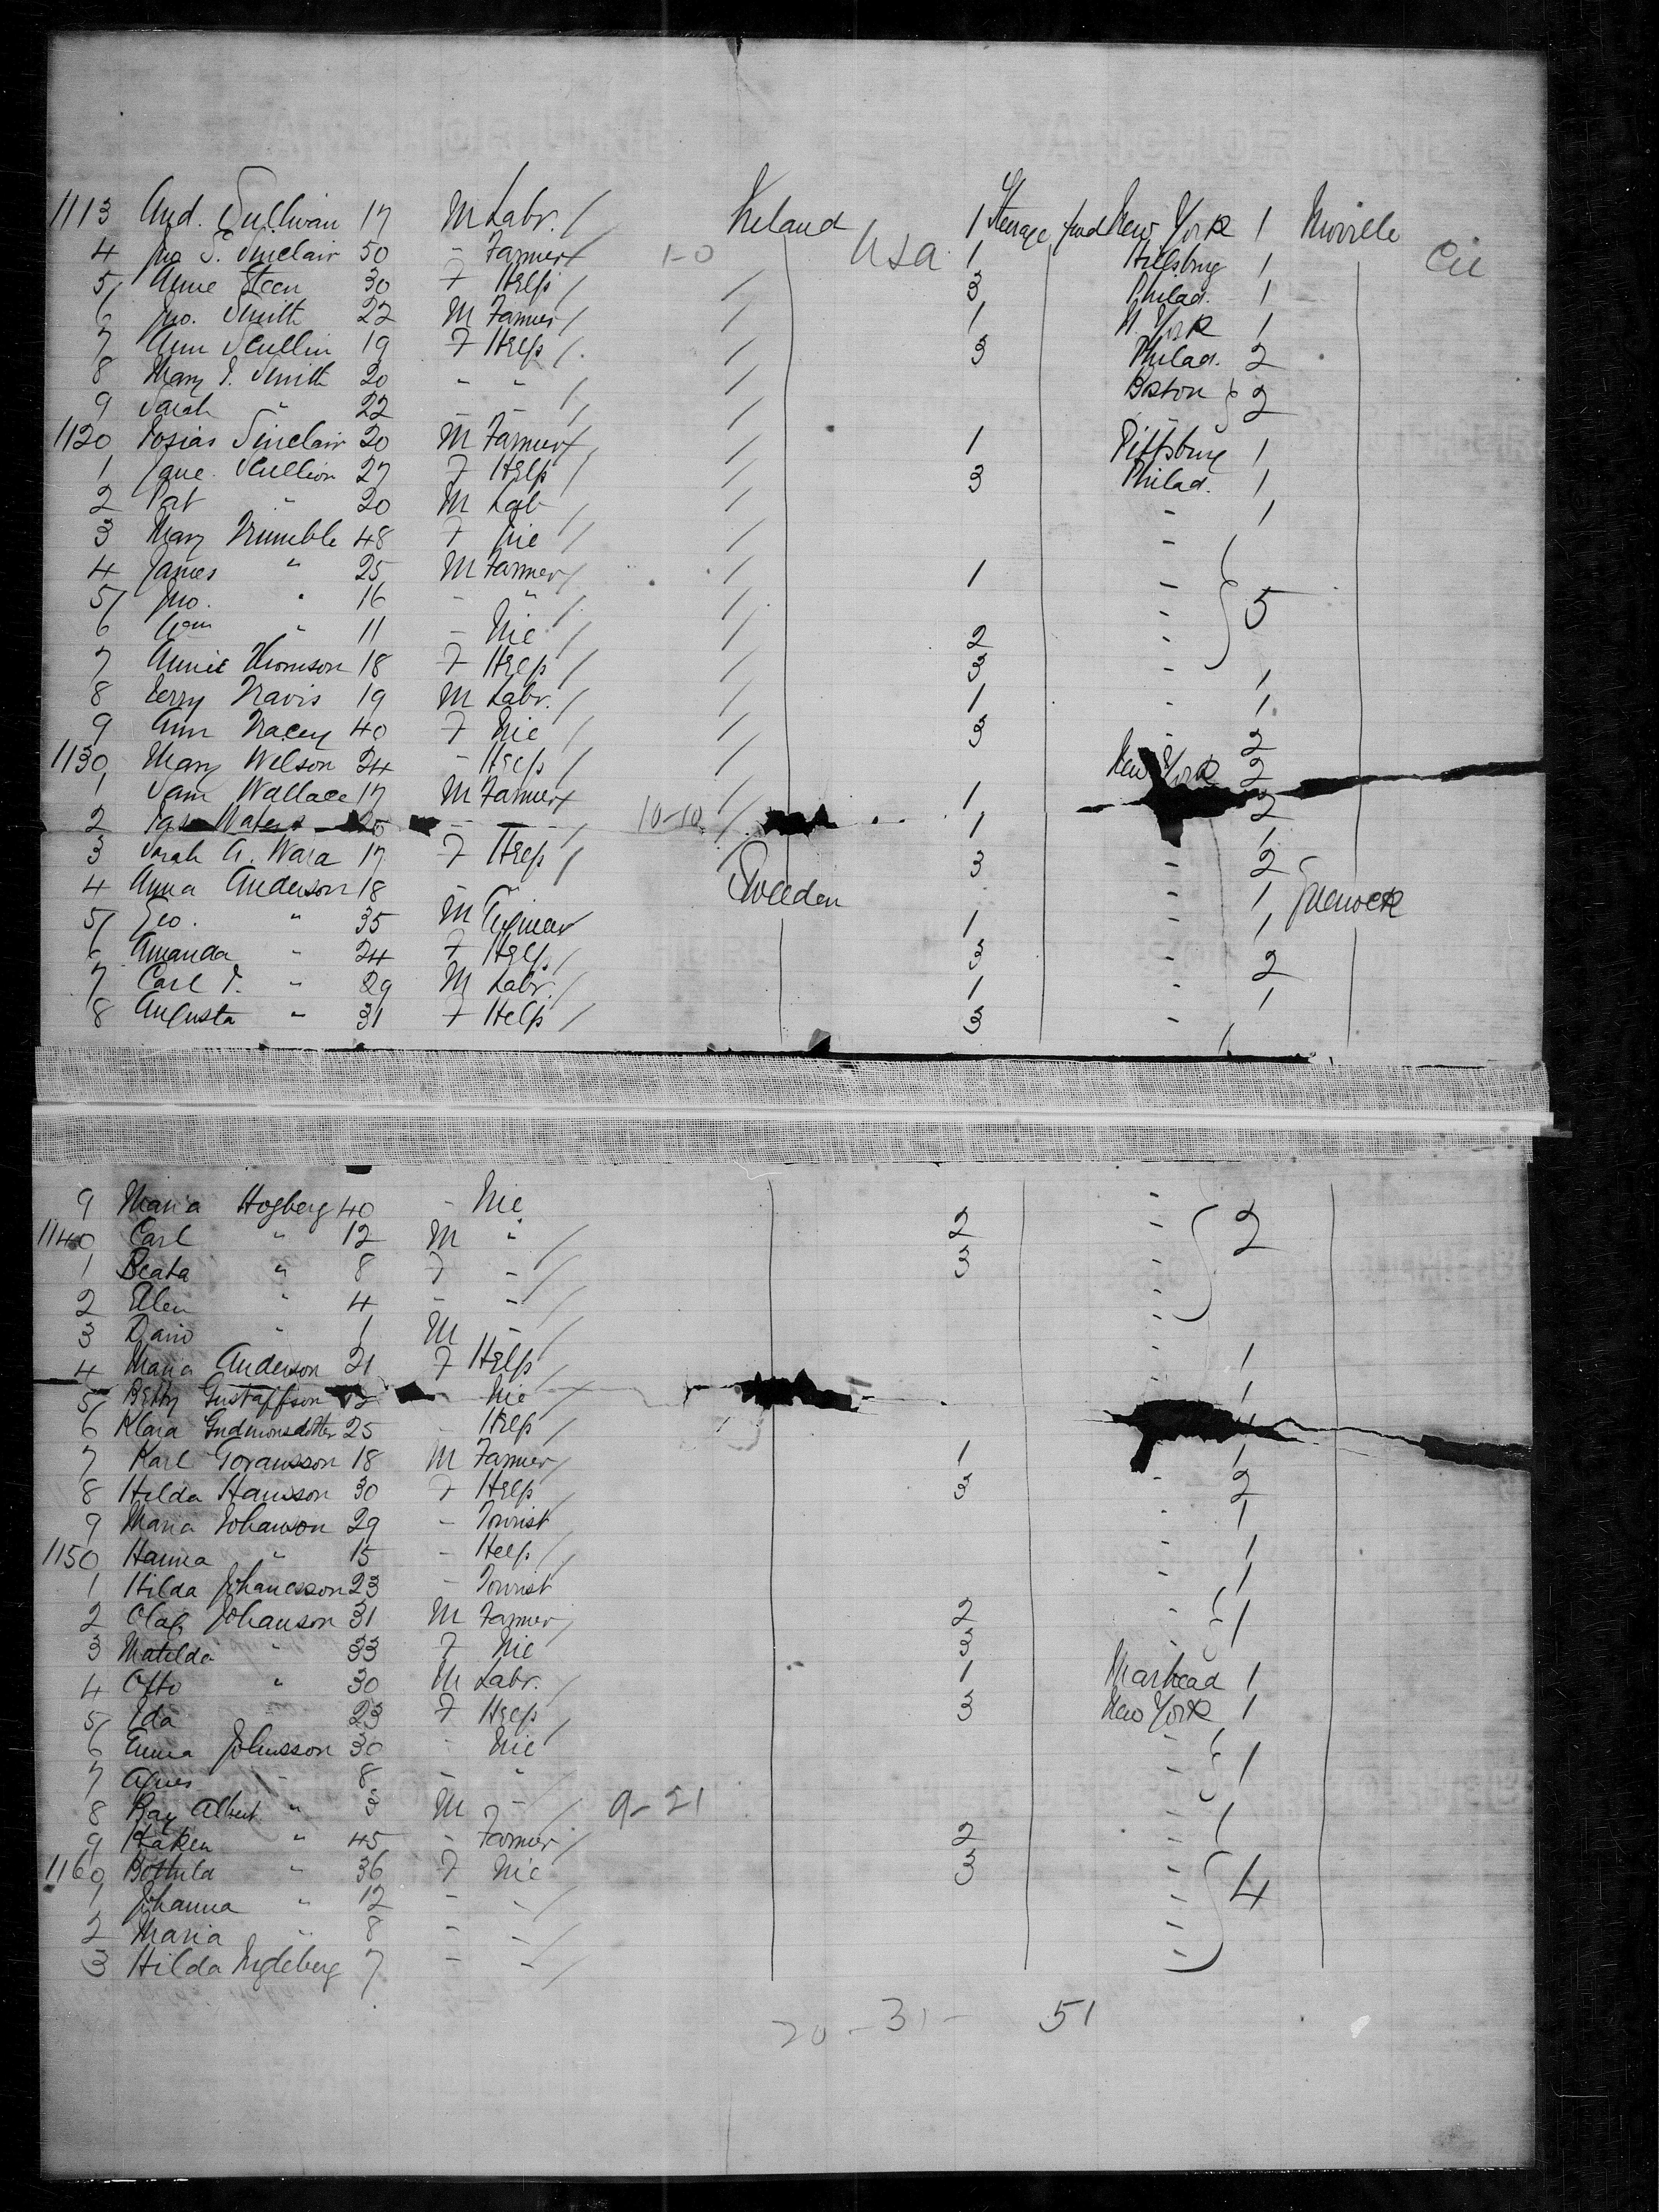 1113 And. Sullivan 17 M Labr. / Ireland 1 Steerage fwd New York 1 Moville
4 Jno S. Sinclair 50 - Farmer 1-0 USA 1 Pittsburg 1
5 Annie Steen 30 F Help / / 3 Philad. 1
6 Jno. Smith 22 M Farmer / / 1 N. York 1
7 Ann Scullin 19 F Help / / 3 Philad. 2
8 Mary J. Smith 20 " " / / Boston } 2
9 Sarah " 22 - - / /
1120 Josias Sinclair 20 M Farmer / 1 Pittsburg 1
1 Jane Scullion 27 F Help / / 3 Philad. 1
2 Pat " 20 M Lab / / - 1
3 Mary Trumble 48 F Nie / / -
4 James " 25 M Farmer / / 1 -
5 Jno. " 16 - " / / - } 5
6 Wm " 11 - Nie / / 2 -
7 Annie Thomson 18 F Help / / 3 - 1
8 Terry Travis 19 M Labr. / / 1 - 1
9 Ann Tracey 40 F Nie / / 3 - 2
1130 Mary Wilson 24 - Help / / New York 2
1 Sam Wallace 17 M Farmer / 1 2
2 Jas Waters 25 - - / 10-10 / 1 1
3 Sarah A. Wara 17 F Help / / 3 - 2
4 Anna Anderson 18 - " Sweden - 1 Greenock
5 Geo. " 35 M 1 - 1
6 Amanda " 24 F Help / 3 - 2
7 Carl J. " 29 M Labr. / 1 - 1
8 Augusta " 31 F Help / 3 - 1
9 Maria Hogberg 40 - Nie -
1140 Carl " 12 M " / 2 - } 2
1 Beata " 8 F - / 3 -
2 Elen " 4 - - / -
3 David " 1 M - /
4 Maria Anderson 21 F Help / - 1
5 Betty Gustaffson 12 - Nie / 1
6 Klara Gudmonsdotter 25 - Help /
7 Karl Goransson 18 M Farmer / 1 1
8 Hilda Hansson 30 F Help / 3 - 2
9 Maria Johanson 29 - Tourist - 1
1150 Hanna " 15 - Help / - 1
1 Hilda Johanesson 23 - Tourist - 1
2 Olaf Johanson 31 M Farmer / 2 - } 1
3 Matilda " 33 F Nie 3 -
4 Otto " 30 M Labr. / 1 1
5 Ida " 23 F Help / 3 New York 1
6 Anna Johnsson 30 - Nie - } 1
7 Agnes " 8 - " / -
8 Ray Albert " 3 M - / 9-21 -
9 Haken " 45 - Farmer / 2 -
1160 Bothild " 36 F Nie 3 - } 4
1 Johanna " 12 - - / -
2 Maria " 8 - - / -
3 Hilda Ingleberg 7 - - / -
20 - 31 - 51